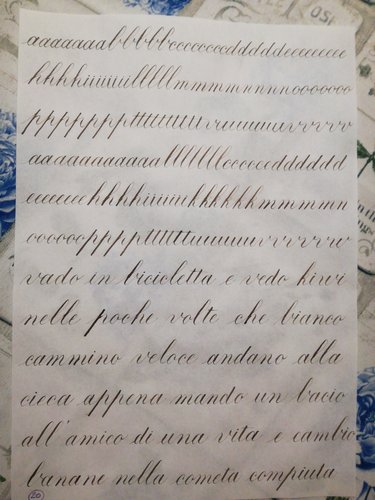 aaaaaaabbbbbcccccccdddddeeeeeeee
hhhhiiiiiiillllllmmmmnnnnooooooo
ppppppptttttttttuuuuuuuvvvvv
aaaaaaaaaaabbbbbbbccccccdddddd
eeeeeeehhhhiiiiiikkkkkkmmmmn
oooooopppptttttttuuuuuuvvvvvv
vado in bicicletta e vedo kiwi
nelle poche volte che bianco
cammino veloce andano alla
cieca appena mando un bacio
all'amico di una vita e cambio
banane nella cometa compiuta
20